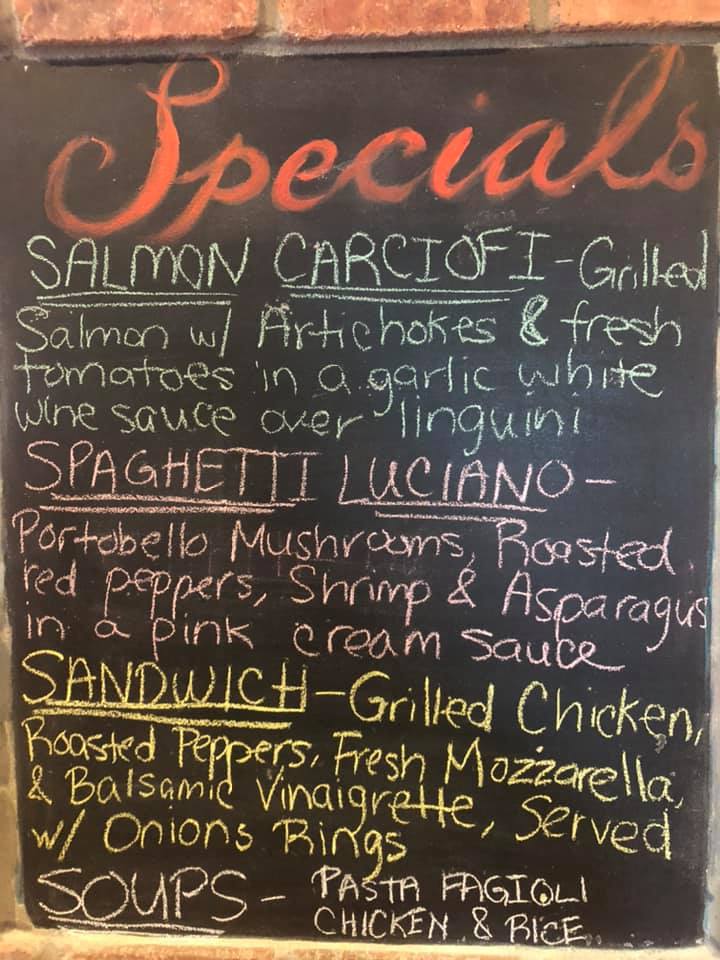 Specials
SALMON CARCIOFI - Grilled
Salmon w/ Artichokes & fresh
tomatoes in a garlic white
wine sauce over linguini
SPAGHETTI LUCIANO -
Portobello Mushrooms, Roasted
red peppers, Shrimp & Asparagus
in a pink cream sauce
SANDWICH - Grilled Chicken,
Roasted Peppers, Fresh Mozzarella,
& Balsamic Vinaigrette, Served
w/ Onions Rings
SOUPS - PASTA FAGIOLI
CHICKEN & RICE